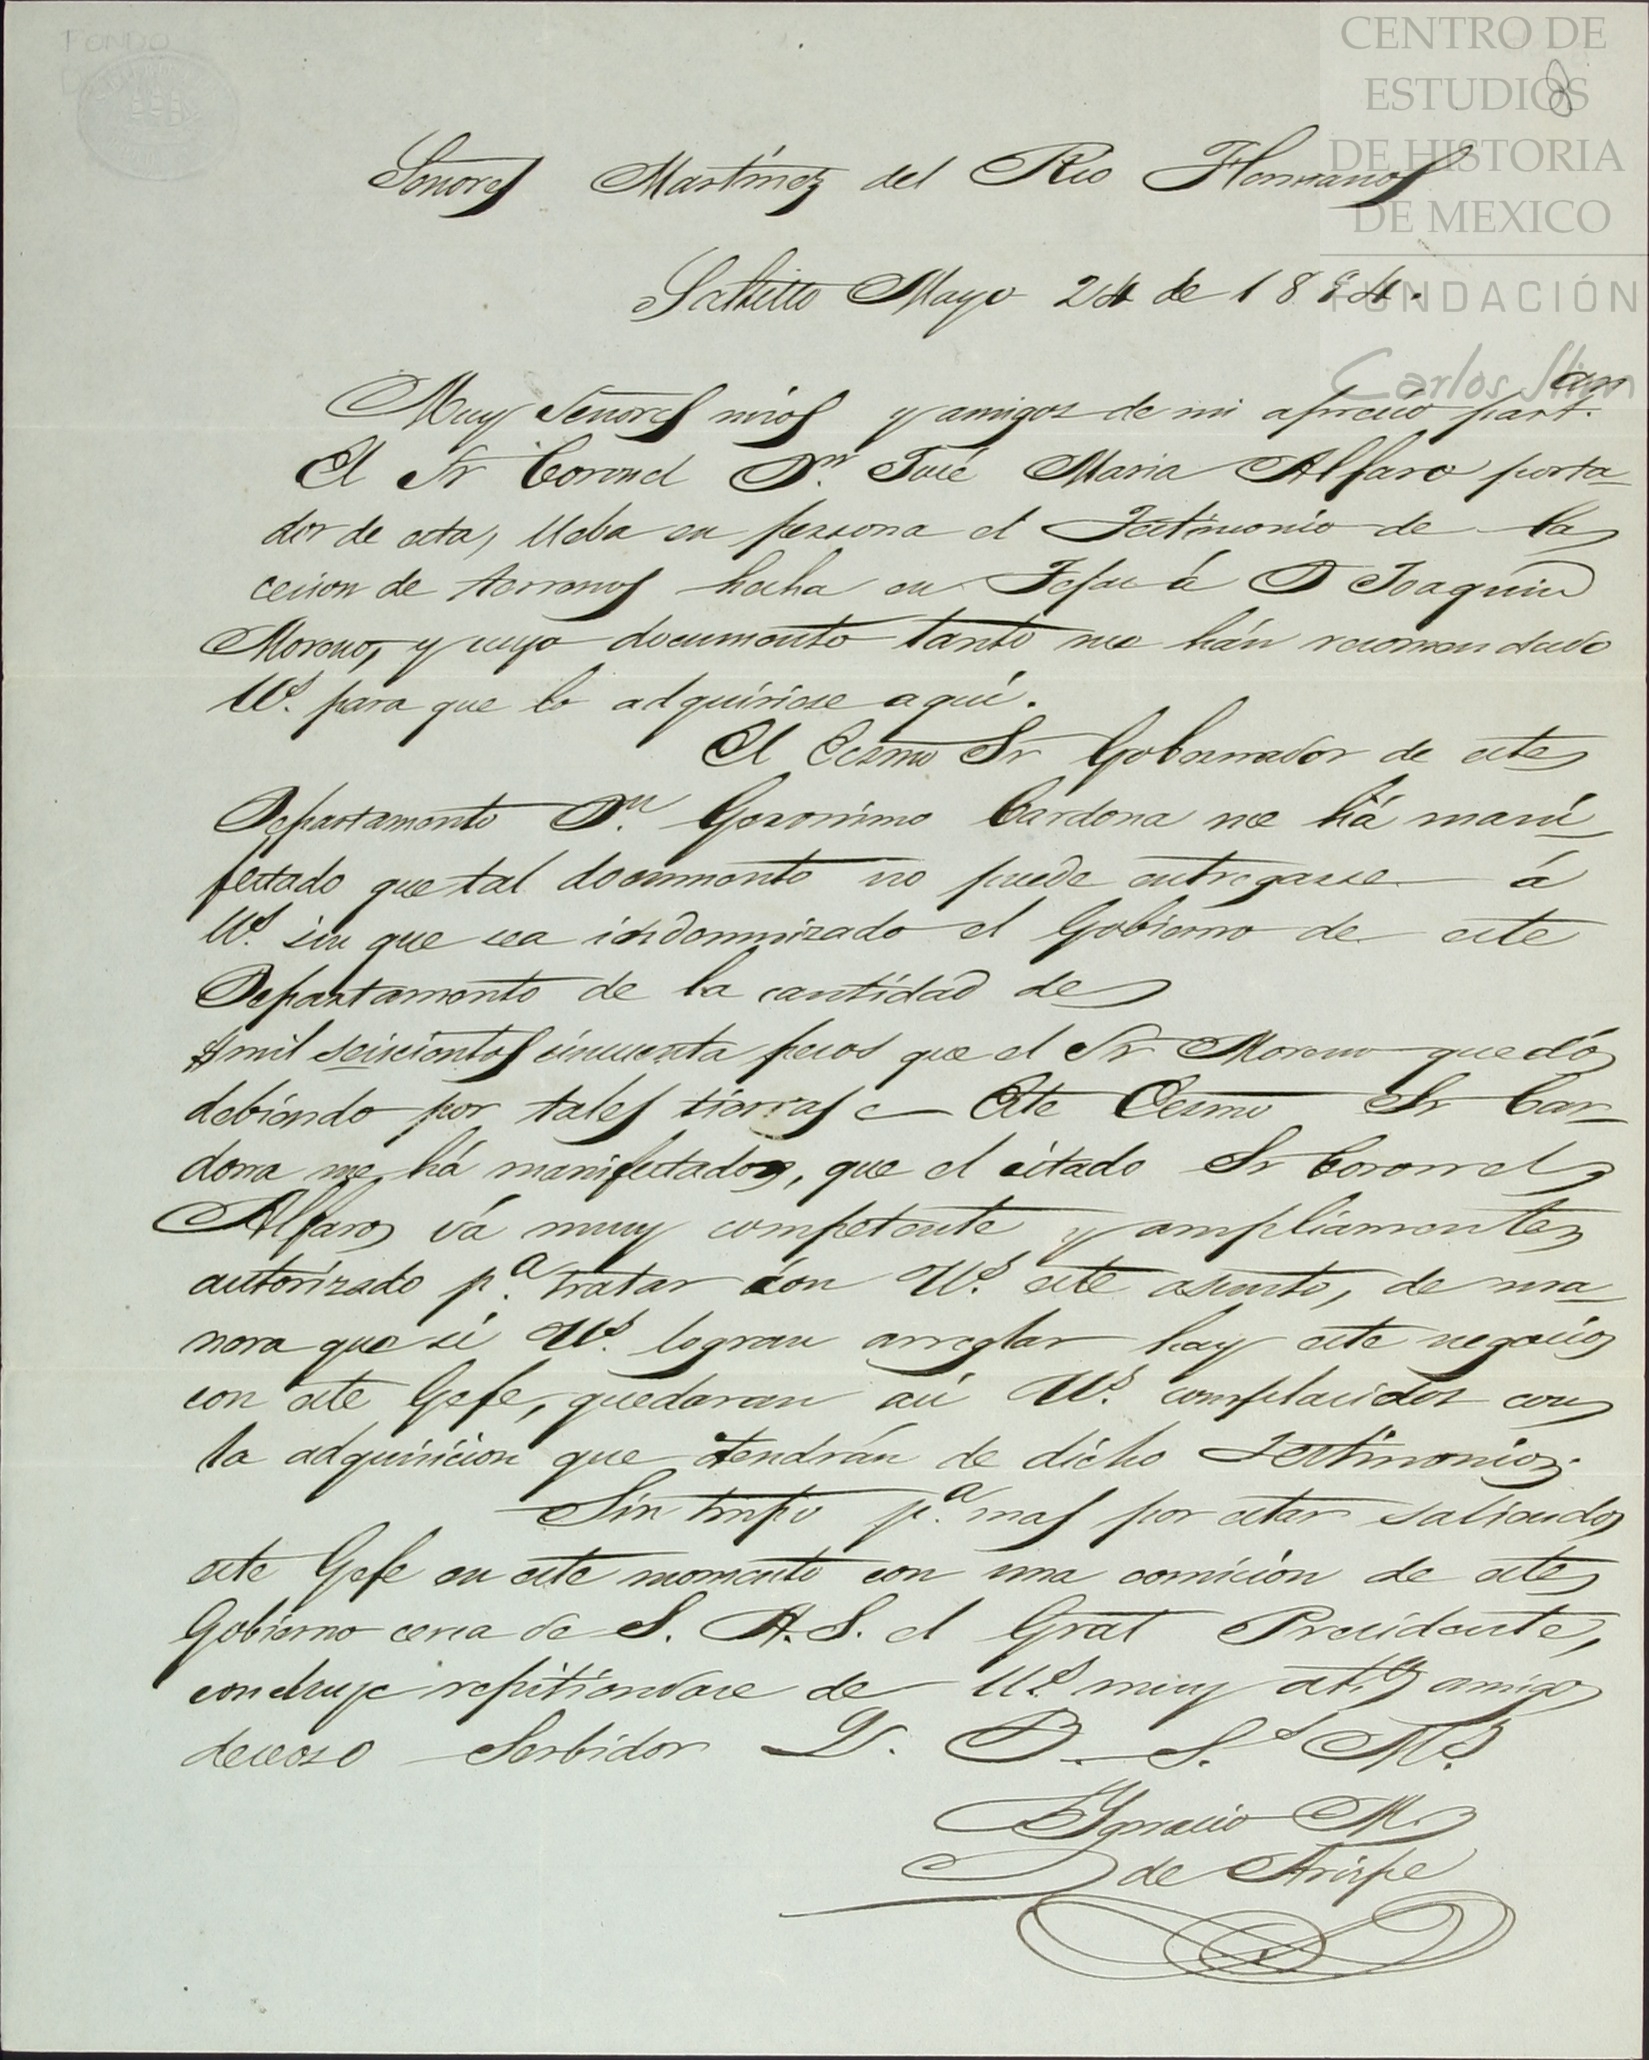 FONDO
CENTRO DE
ESTUDIOS
DE HISTORIA
DE MEXICO
FUNDACIÓN
Carlos Slim
Señores Martinez del Rio Hermanos
Saltillo Mayo 24 de 1854.
Muy Señores mios y amigos de mi aprecio part.ar
El Sr Coronel D.n José Maria Alfaro porta-
dor de esta, lleba en persona el Testimonio de la
cesion de terrenos hecha en Tejas á D Joaquin
Moreno, y cuyo documento tanto me hán recomendado
U.s para que lo adquiriese aqui.
El Ecsmo Sr Gobernador de este
Departamento D.n Geronimo Cardona me há mani-
festado que tal documento no puede entregarse á
U.s sin que sea indemnizado el Gobierno de este
Departamento de la cantidad de
mil seiscientos cincuenta pesos que el Sr Moreno quedó
debiendo por tales tierras Este Ecsmo Sr Car-
dona me há manifestado, que el citado Sr Coronel
Alfaro vá muy competente y ampliamente
autorizado p.a tratar con U.s este asunto, de ma-
nera que si U.s logran arreglar hay este negocio
con este Gefe, quedaran asi U.s complacidos con
la adquisicion que tendrán de dicho Testimonio.
Sin tmpo p.a mas por estar saliendo
este Gefe en este momento con una comision de este
Gobierno cerca de S. A. S. el Gral Presidente,
concluye repitiendose de U.s muy at.o amigo
deceoso Serbidor Q. B. S. M.s
Ygnacio M.
de Arispe